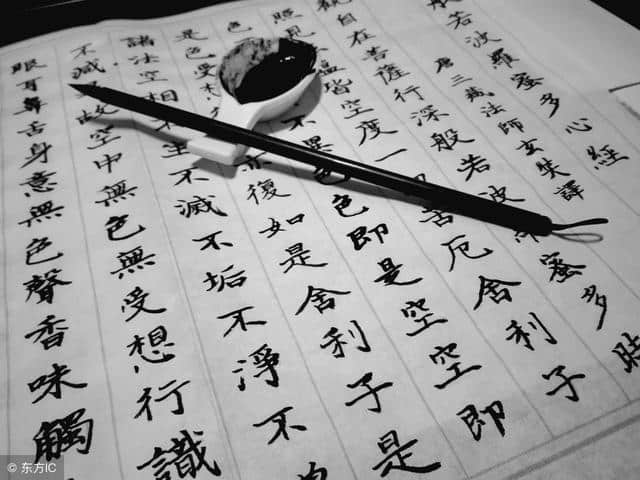 般若波羅蜜多心經
唐三藏法師玄奘譯
觀自在菩薩行深般若波蜜多時
照見皆空度一苦厄舍利子
色不異色色即是空空即
是色受亦復如是舍利子是
諸法空相不生不滅不垢不淨不
不減故空中無色無受想行識
眼耳鼻舌身意無色聲香味觸
© 东方IC